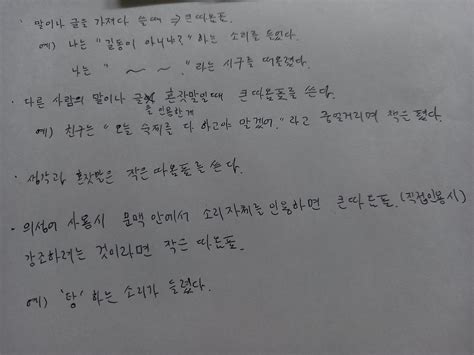 · 말이나 글을 가져다 쓸 때 ⇒ 큰따옴표.
예) 나는 "길동이 아니냐?" 하는 소리를 들었다.
나는 " ~ ~ ." 라는 시구를 떠올렸다.
· 다른 사람의 말이나 글 혼잣말일때 큰따옴표를 쓴다.
을 인용한게
예) 친구는 "오늘 숙제를 다 하고야 말겠어." 라고 중얼거리며 책은 폈다.
· 생각과 혼잣말은 작은 따옴표를 쓴다.
· 의성어 사용시 문맥 안에서 소리자체를 인용하면 큰따옴표. (직접인용시)
강조하려는 것이라면 작은 따옴표.
예) '탕' 하는 소리가 들렸다.